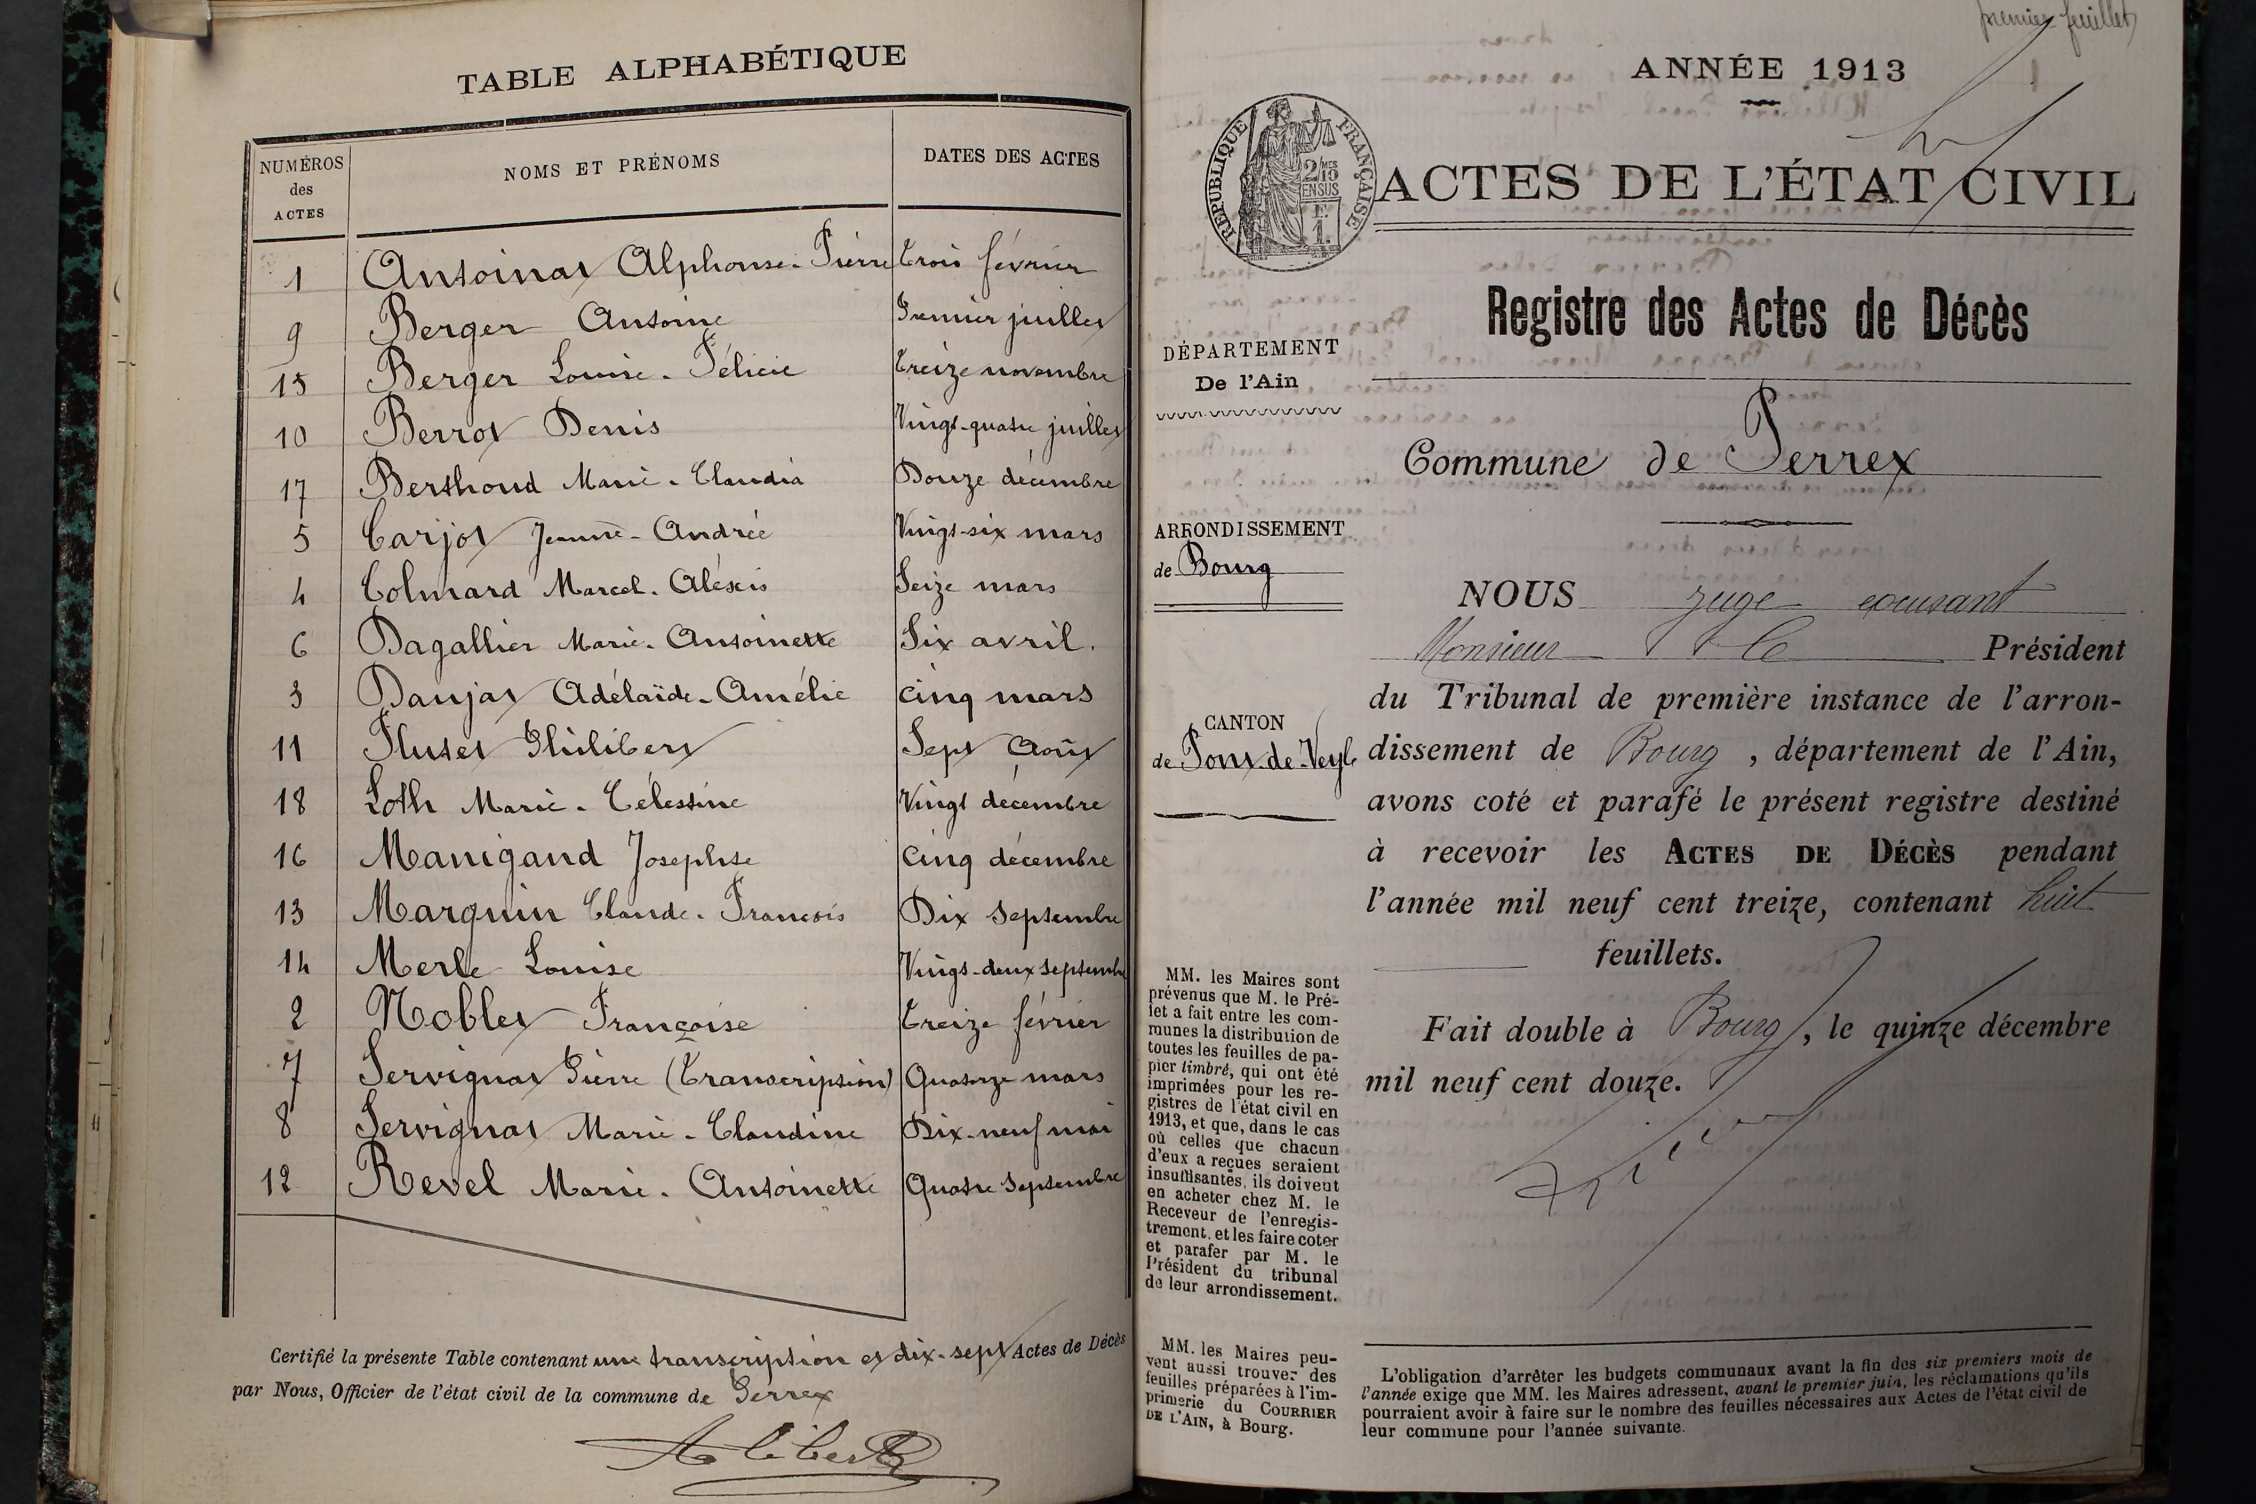 TABLE ALPHABÉTIQUE
NUMÉROS des ACTES | NOMS ET PRÉNOMS | DATES DES ACTES
1 Antoinat Alphonse-Pierre Trois février
9 Berger Antoine Premier juillet
15 Berger Louise-Félicie Treize novembre
10 Berrot Denis Vingt-quatre juillet
17 Berthoud Marie-Claudia Douze décembre
5 Carjot Jeanne-Andrée Vingt-six mars
4 Colmard Marcel-Aléxis Seize mars
6 Dagallier Marie-Antoinette Six avril.
3 Danjat Adélaïde-Amélie cinq mars
11 Flutet Philibert Sept Août
18 Loth Marie-Célestine Vingt décembre
16 Manigand Josephte Cinq décembre
13 Marquin Claude-François Dix Septembre
14 Merle Louise Vingt-deux septembre
2 Noblet Françoise Treize février
7 Servignat Pierre (Transcription) Quatorze mars
8 Servignat Marie-Claudine Dix-neuf mai
12 Revel Marie-Antoinette Quatre Septembre
Certifié la présente Table contenant une transcription et dix-sept Actes de Décès
par Nous, Officier de l'état civil de la commune de Perrex
premier feuillet
ANNÉE 1913
RÉPUBLIQUE FRANÇAISE
2/10MES
EN SUS
1F.
ACTES DE L'ÉTAT CIVIL
Registre des Actes de Décès
DÉPARTEMENT
De l'Ain
Commune de Perrex
ARRONDISSEMENT
de Bourg
CANTON
de Pont-de-Veyle
NOUS juge excusant
Monsieur le Président
du Tribunal de première instance de l'arron-
dissement de Bourg, département de l'Ain,
avons coté et parafé le présent registre destiné
à recevoir les ACTES DE DÉCÈS pendant
l'année mil neuf cent treize, contenant huit
feuillets.
Fait double à Bourg, le quinze décembre
mil neuf cent douze.
MM. les Maires sont
prévenus que M. le Pré-
fet a fait entre les com-
munes la distribution de
toutes les feuilles de pa-
pier timbré, qui ont été
imprimées pour les re-
gistres de l'état civil en
1913, et que, dans le cas
où celles que chacun
d'eux a reçues seraient
insuffisantes, ils doivent
en acheter chez M. le
Receveur de l'enregis-
trement, et les faire coter
et parafer par M. le
Président du tribunal
de leur arrondissement.
MM. les Maires peu-
vent aussi trouver des
feuilles préparées à l'im-
primerie du COURRIER
DE L'AIN, à Bourg.
L'obligation d'arrêter les budgets communaux avant la fin des six premiers mois de
l'année exige que MM. les Maires adressent, avant le premier juin, les réclamations qu'ils
pourraient avoir à faire sur le nombre des feuilles nécessaires aux Actes de l'état civil de
leur commune pour l'année suivante.